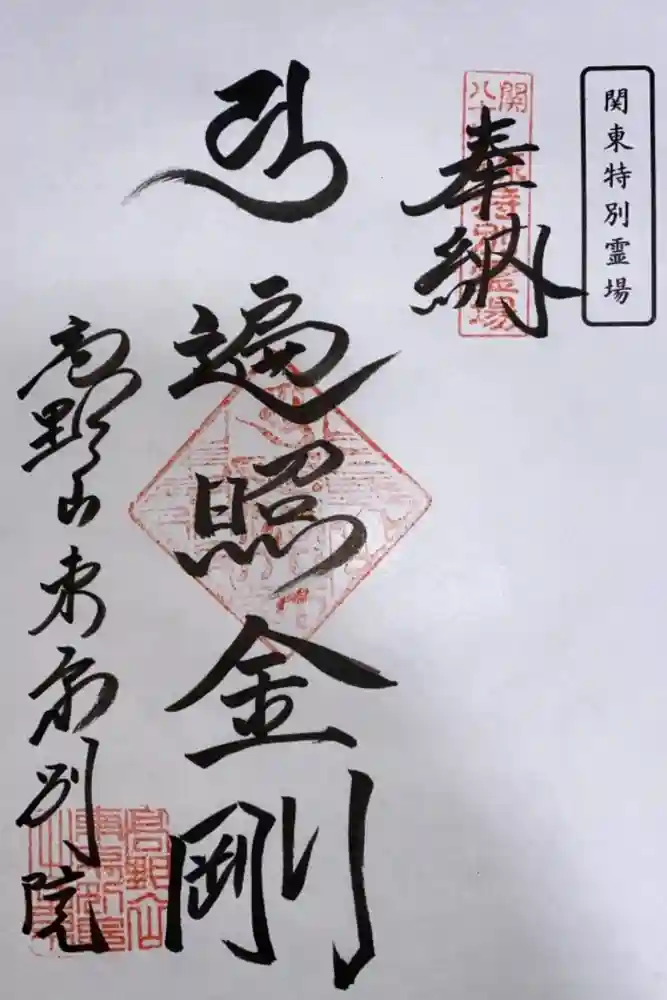 関東特別霊場
奉納
遍照金剛
高野山東京別院